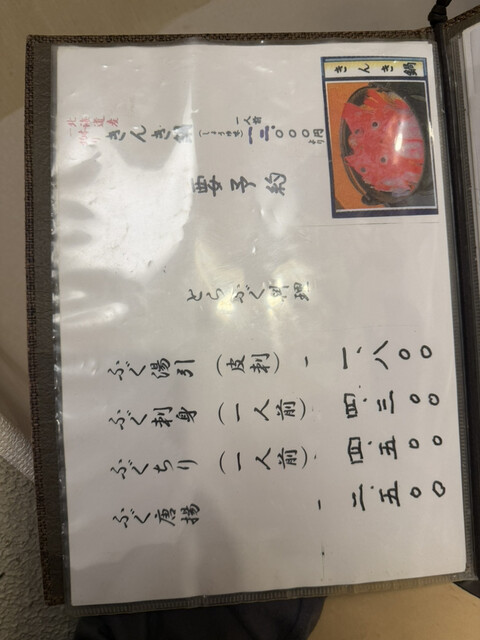 きんき鍋
北海道産
きんき鍋
(しょうゆ味)
一人前
一二〇〇〇円より
要予約
とらふぐ料理
ふぐ湯引(皮刺) 一、八〇〇
ふぐ刺身(一人前) 四、三〇〇
ふぐちり(一人前) 四、五〇〇
ふぐ唐揚 二、五〇〇